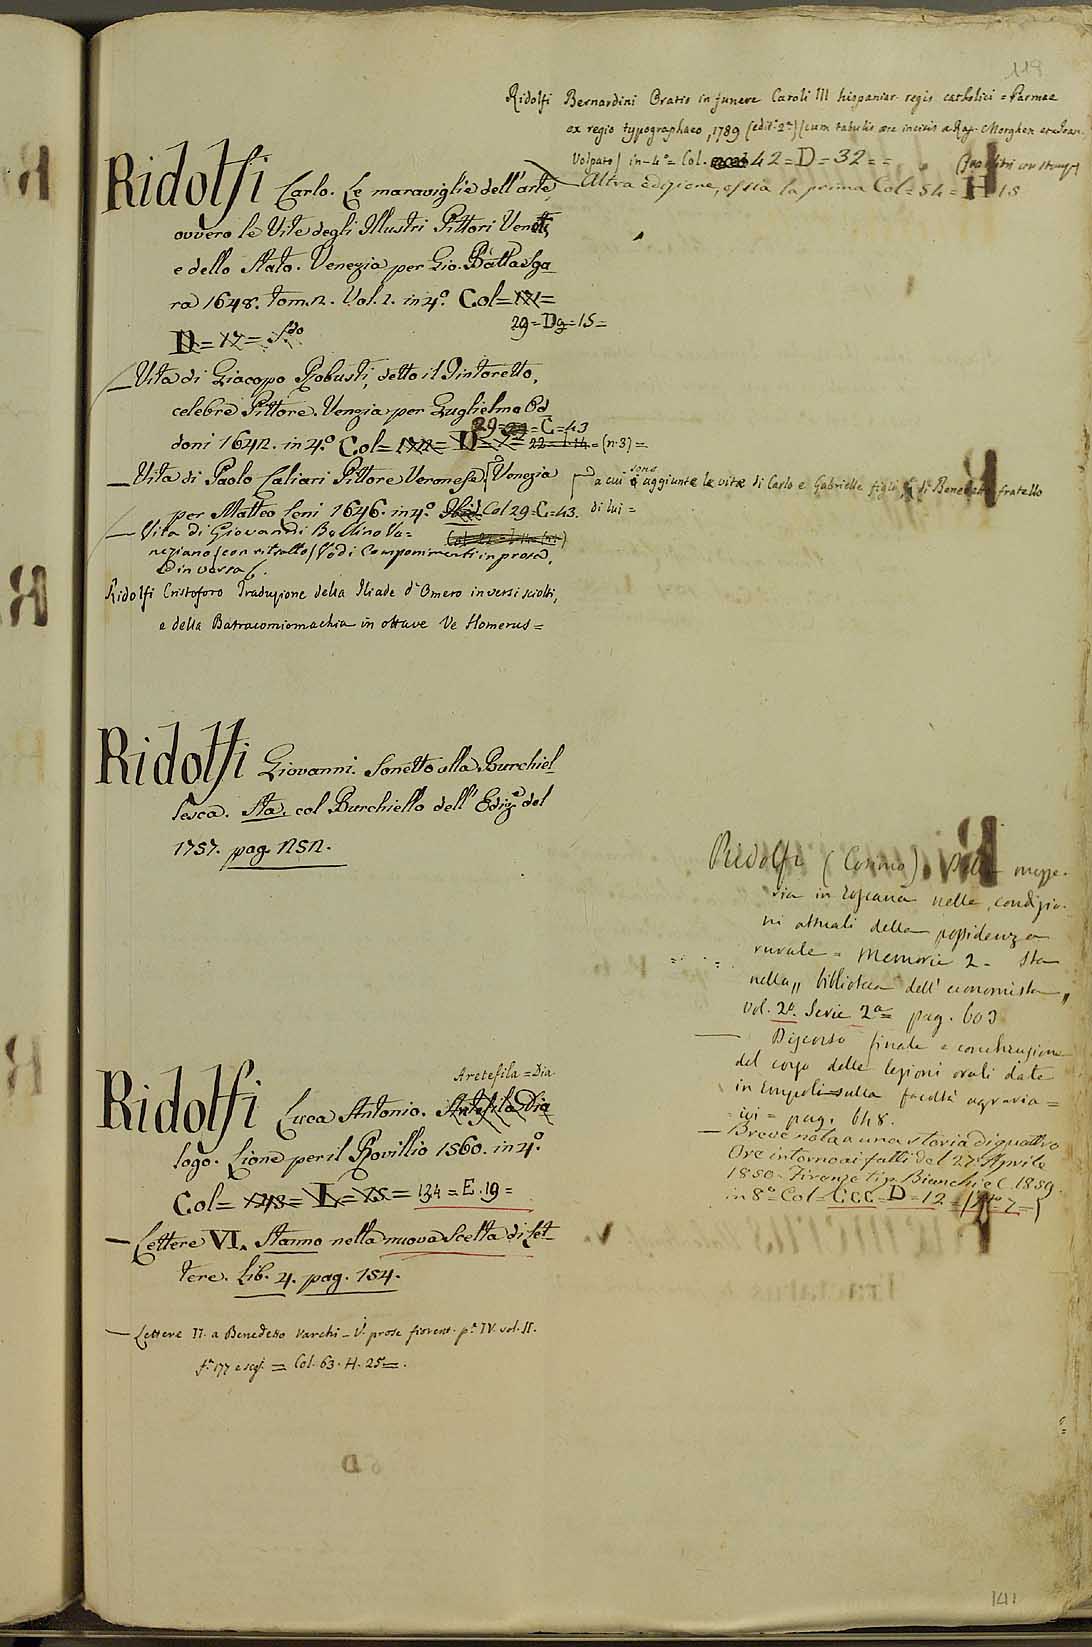 119
Ridolfi Bernardini Oratio in funere Caroli III hispaniar. regis catholici = Parmae
ex regio typographaeo, 1789 (edit. 2ª) (cum tabulis aere incisis a Raf. Morghen et a Joan.
Volpato) in-4º = Col. 42 = D = 32 = =
Altra edizione, ossia la prima Col = 54 = H 15
Ridolfi Carlo. Le maraviglie dell'arte,
ovvero le Vite degli Illustri Pittori Veneti,
e dello Stato. Venezia per Gio. Batta Sga
ra 1648. tom. 2. Vol. 2. in 4º. Col =
29 = Dg = 15 =
D = 17 =
— Vita di Giacopo Robusti, detto il Tintoretto,
celebre Pittore. Venezia per Guglielmo Od
29 = C = 43
doni 1642. in 4º Col = D = = (n. 3) =
— Vita di Paolo Caliari Pittore Veronese. Venezia
a cui sono aggiunte le vite di Carlo e Gabrielle figli, e di Benedetto fratello
di lui =
per Matteo Leni 1646. in 4º. Ibid. Col 29 = C = 43.
— Vita di Giovanni Bellino Ve =
neziano (con ritratto) Vedi Componimenti in prosa,
e in versa
Ridolfi Cristoforo Traduzione della Iliade d'Omero in versi sciolti,
e della Batracomiomachia in ottave Ve Homerus =
Ridolfi Giovanni. Sonetto alla Burchiel
lesca. Sta. col Burchiello dell' Ediz.e del
1757. pag. 252.
Ridolfi (Cosimo). Della mezze-
ria in Toscana nelle condizio-
ni attuali della possidenza
rurale = Memorie 2 - Sta
nella „ biblioteca dell' economista „
vol. 2º. Serie 2ª = pag. 603
— Discorso finale e conclusione
del corso delle lezioni orali date
in Empoli sulla facoltà agraria =
ivi = pag. 648.
— Breve nota a una storia di quattro
Ore intorno ai fatti del 27 Aprile
1859 - Firenze tip. Bianchi e C. 1859
in 8º Col = CCC = D = 12 =
Aretefila = Dia
Ridolfi Luca Antonio. Aretefila Dia
logo. Lione per il Rovillio 1560. in 4º.
Col = 148 = L = 15 = 134 = E. 19 =
— Lettere VI. Stanno nella nuova Scelta di Let
tere. Lib. 4. pag. 154.
— Lettere II. a Benedetto Varchi - V. prose fiorent. pª. IV. vol. II.
fº. 177 e segt. = Col. 63. H. 25 =.
141